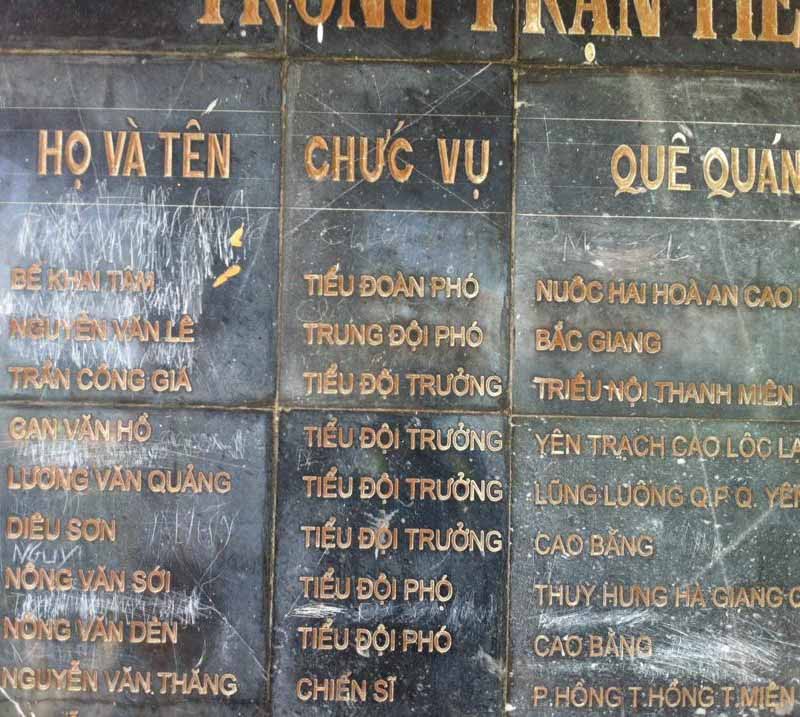 TRONG TRẬN TIÊ
HỌ VÀ TÊN CHỨC VỤ QUÊ QUÁN
BẾ KHAI TÂM TIỂU ĐOÀN PHÓ NUÔC HAI HOÀ AN CAO
NGUYÊN VĂN LÊ TRUNG ĐỘI PHÓ BẮC GIANG
TRẦN CÔNG GIÁ TIỂU ĐỘI TRƯỞNG TRIỀU NỘI THANH MIÊN
CAN VĂN HỒ TIỂU ĐỘI TRƯỞNG YÊN TRẠCH CAO LỘC LA
LƯƠNG VĂN QUẢNG TIỂU ĐỘI TRƯỞNG LŨNG LUÔNG Q.P Q. YÊN
DIÊU SƠN TIỂU ĐỘI TRƯỞNG CAO BẰNG
NÔNG VĂN SỚI TIỂU ĐỘI PHÓ THUỴ HƯNG HÀ GIANG C
NÔNG VĂN DÈN TIỂU ĐỘI PHÓ CAO BẰNG
NGUYỄN VĂN THẮNG CHIẾN SĨ P.HỒNG T.HỒNG T.MIÊN